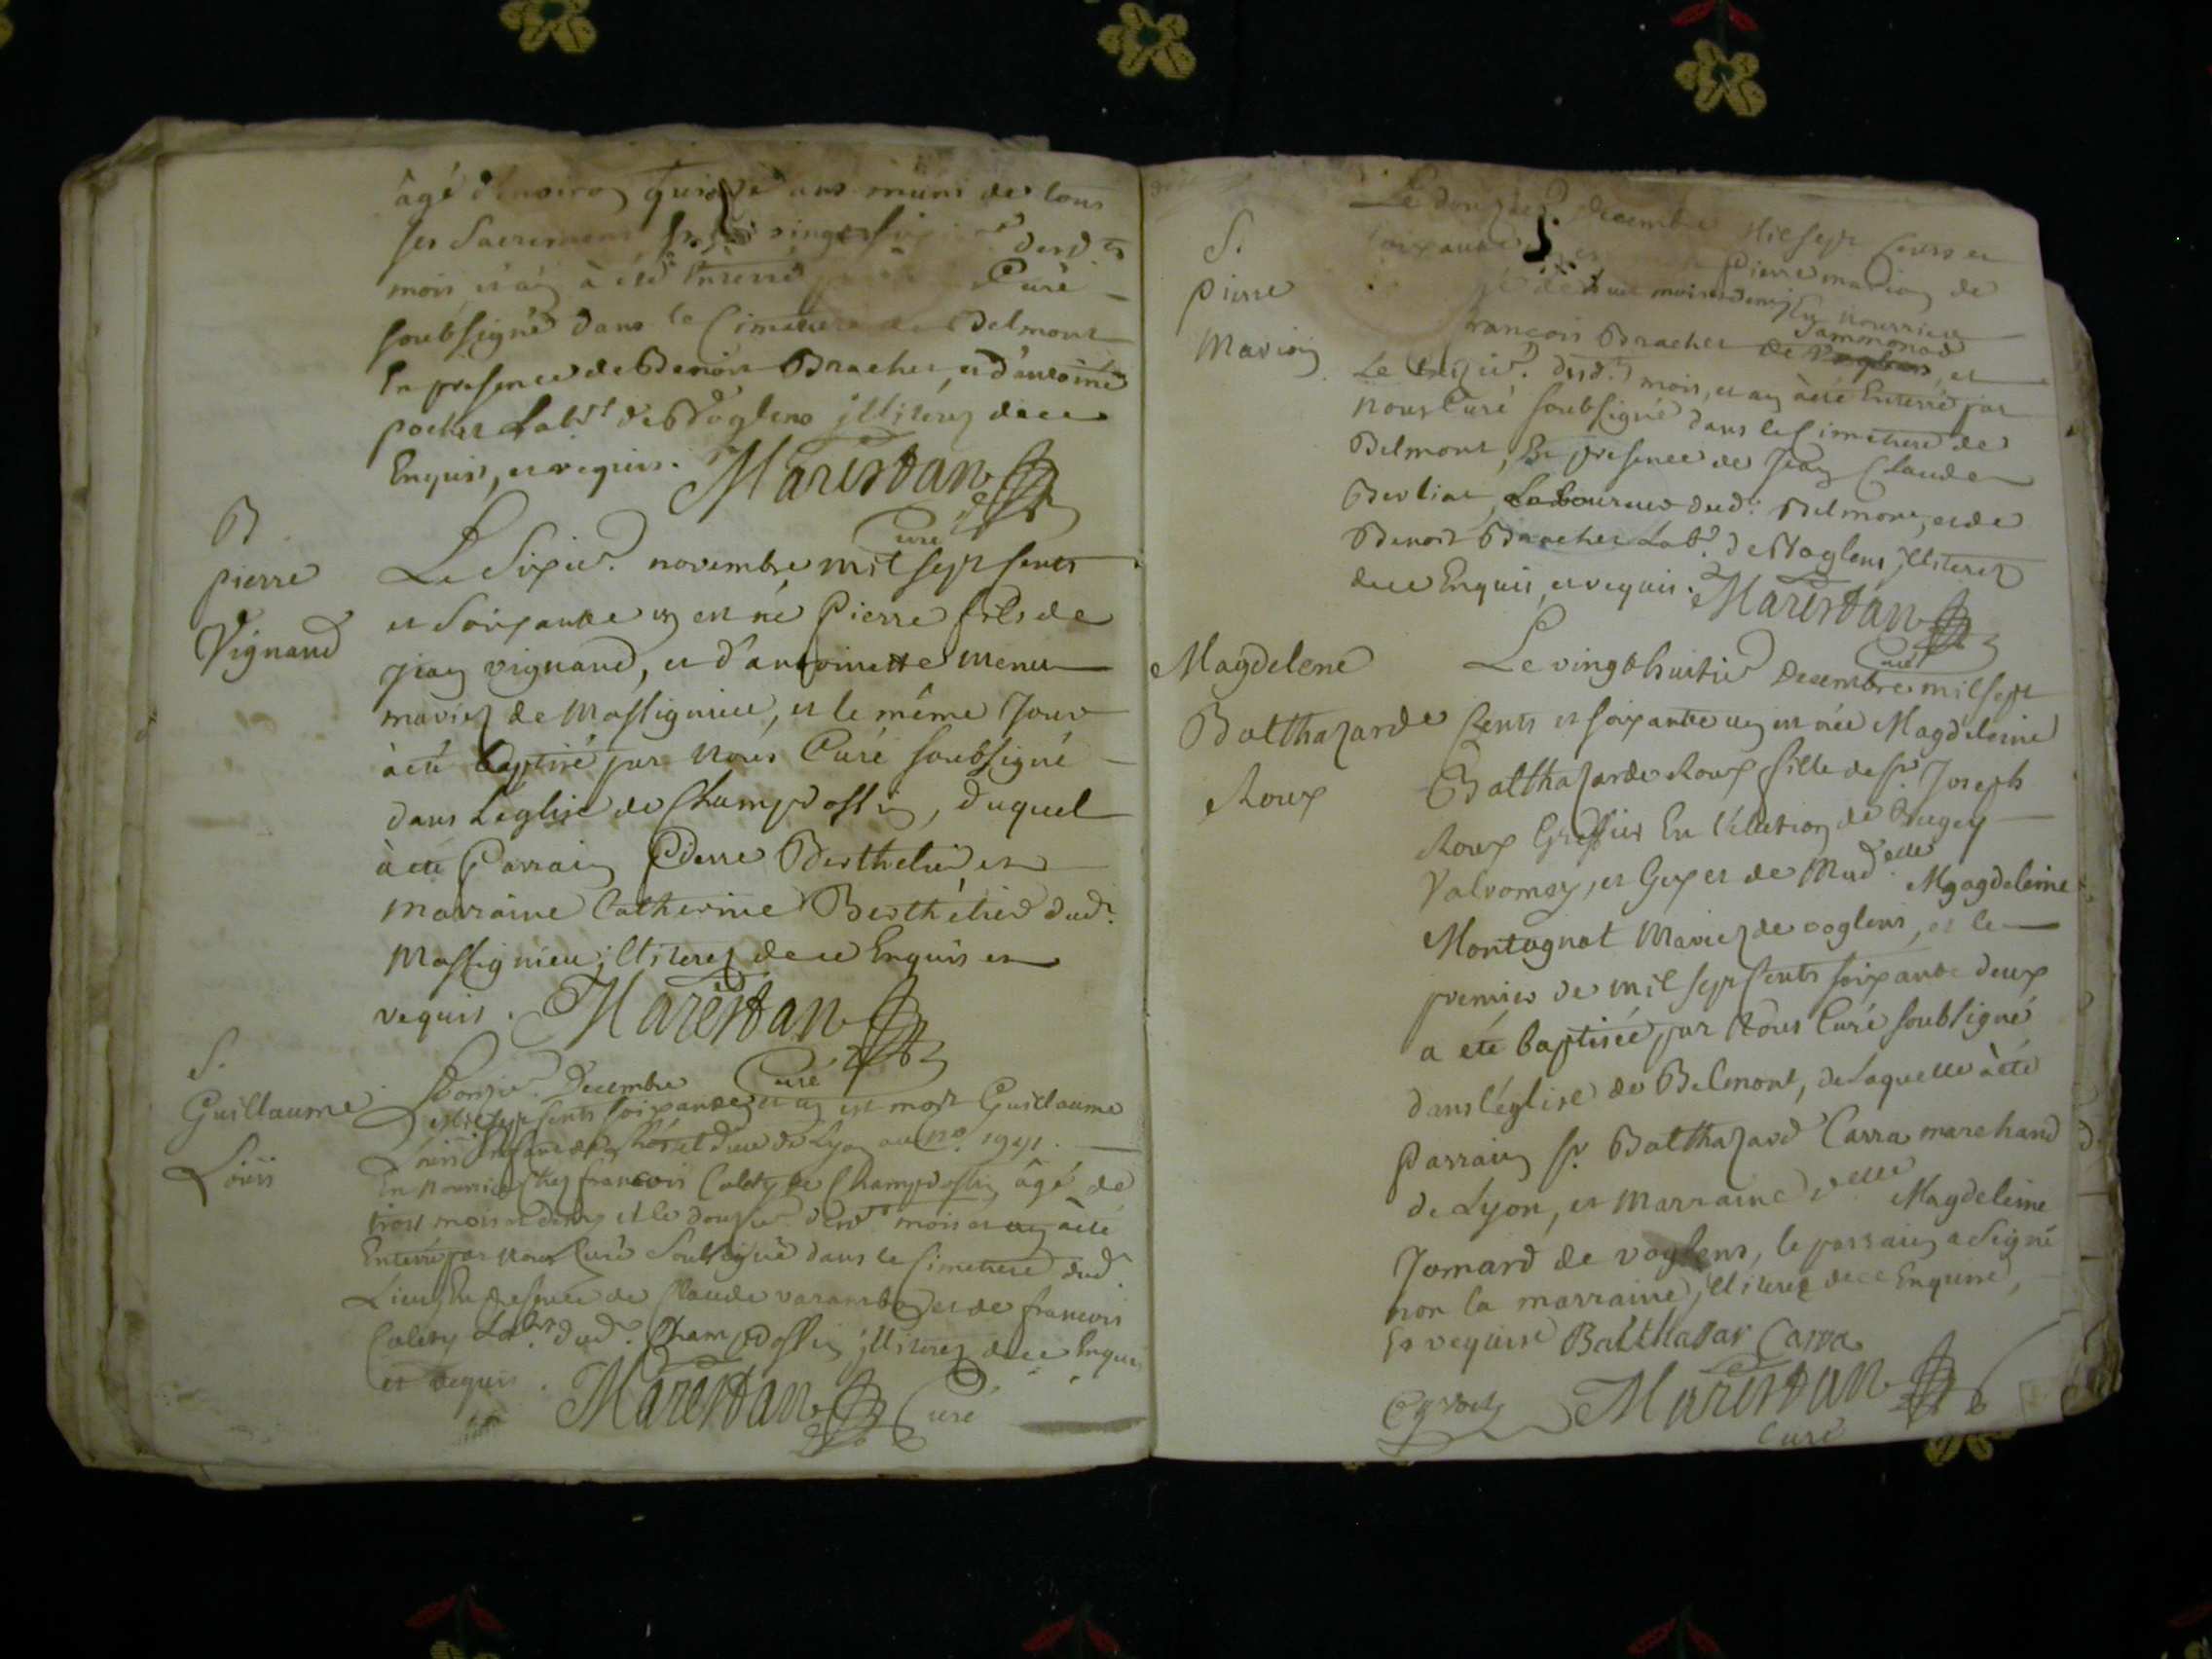 âgé d'environ quinze ans muni de tous
ses Sacremens
mois et an à été Enterré Curé
soubsigné dans le Cimetiere de Belmont
En presence de Benoit Bracher, et d'antoine
pocher Lab.rs de Voglens illiterez de ce
Enquis, et requis. Marestan
Curé
B
pierre
Vignand
Le Sixie. novembre mil sept cents
et soixante un est né Pierre fils de
jean vignand, et d'antoinette menu
mariez de Massignieu, et le même Jour
à été baptisé par Nous Curé soubsigné
dans L'eglise de Champdossin, duquel
à été Parrain Pierre Berthelier, et
marraine Catherine Berthélier dud.
Massignieu illiterez de ce Enquis et
requis. Marestan
Curé
S.
Guillaume
Loüis
L'onzie. Decembre
Mil sept cents soixante et un est mort Guillaume
Loüis de Lyon au n.o 1991.
En nourrice chez francois Calety de Champdossin âgé de
trois mois et demy et le douzie. dud. mois et an à été
Enterré par Nous Curé Soubsigné dans le Cimetiere dud.
Lieu, En presence de Claude varambon et de francois
Calety Lab.rs dud. Champdossin illiterez de ce Enquis
et requis. Marestan Curé
S.
Pierre
Marion
Le douzie. Decembre Mil sept Cents et
soixante Pierre marion de
mois et demy En nourrice
françois Bracher Jammonod
de Voglens, et
Le treizie. dud. mois, et an à été Enterré par
nous Curé soubsigné dans le Cimetiere de
Belmont, En presence de Jean Claude
Berliat, Laboureur dud. Belmont, et de
Benoit Bracher Lab.r de Voglens illiterez
de ce Enquis, et requis. Marestan
Curé
Magdelene
Balthazarde
Roux
Le vingt huitie. Decembre mil sept
Cents et soixante un est née Magdeleine
Balthazarde Roux fille de sr. Joseph
Roux Greffier En l'élection de Bugey
Valromey, et Gex et de Mad.elle Magdeleine
Montagnat Mariez de voglens, et le
premier de mil sept cents soixante deux
a été baptisée par Nous Curé soubsigné
dans l'église de Belmont, de laquelle à été
Parrain sr. Balthazard Carra marchand
de Lyon, et Marraine d.elle Magdeleine
Jomard de voglens, le parrain a Signé
non la marraine illiterée de ce Enquise,
Et requise Balthasar Carra
Marestan
Curé